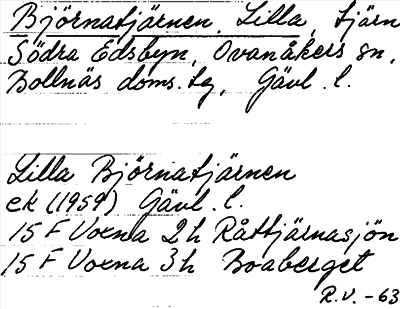 Björnatjärnen, Lilla, tjärn
Södra Edsbyn, Ovanåkers sn,
Bollnäs doms. tg, Gävl. l.
Lilla Björnatjärnen
ek (1959) Gävl. l.
15 F Voxna 2h Råttjärnasjön
15 F Voxna 3h Boaberget
R.V. -63